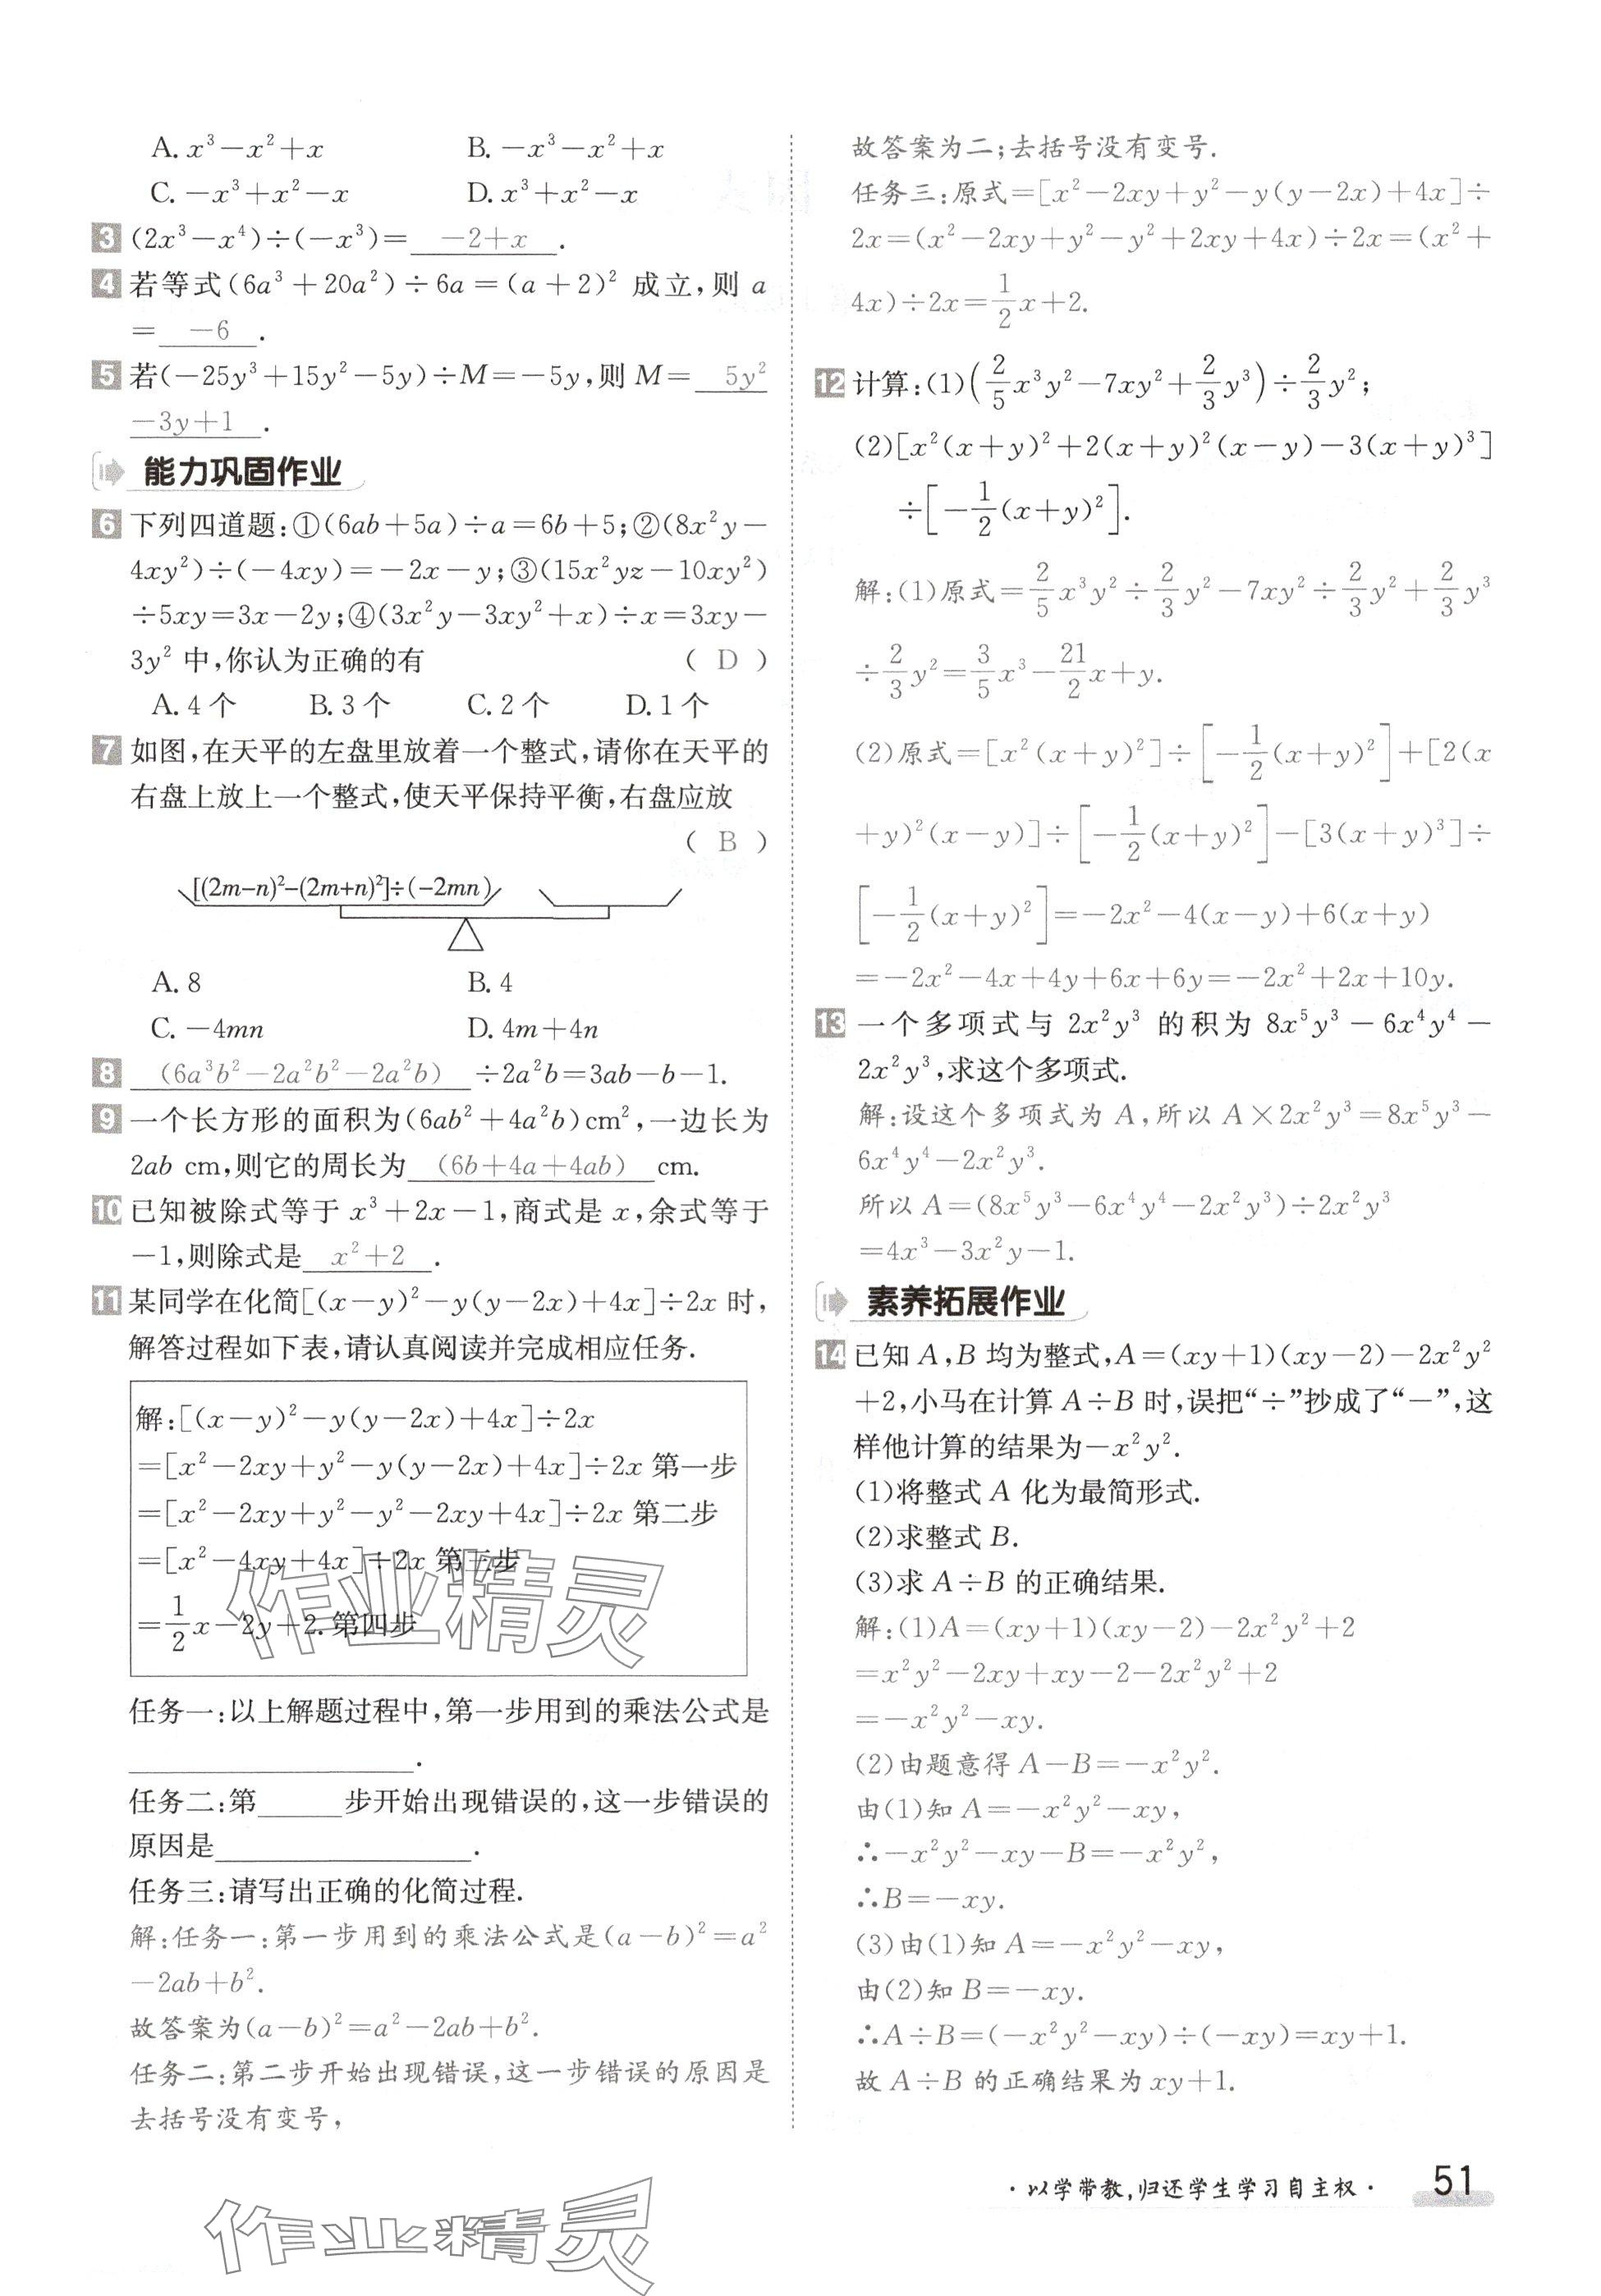 A. x³－x²＋x B. －x³－x²＋x
C. －x³＋x²－x D. x³＋x²－x
3 (2x³－x⁴)÷(－x³)＝ －2＋x .
4 若等式(6a³＋20a²)÷6a＝(a＋2)² 成立,则 a
＝ －6 .
5 若(－25y³＋15y²－5y)÷M＝－5y,则 M＝ 5y²
－3y＋1 .
能力巩固作业
6 下列四道题:①(6ab＋5a)÷a＝6b＋5;②(8x²y－
4xy²)÷(－4xy)＝－2x－y;③(15x²yz－10xy²)
÷5xy＝3x－2y;④(3x²y－3xy²＋x)÷x＝3xy－
3y² 中,你认为正确的有 ( D )
A. 4 个 B. 3 个 C. 2 个 D. 1 个
7 如图,在天平的左盘里放着一个整式,请你在天平的
右盘上放上一个整式,使天平保持平衡,右盘应放
( B )
[(2m-n)²-(2m+n)²]÷(-2mn)
A. 8 B. 4
C. －4mn D. 4m＋4n
8 (6a³b²－2a²b²－2a²b) ÷2a²b＝3ab－b－1.
9 一个长方形的面积为(6ab²＋4a²b)cm²,一边长为
2ab cm,则它的周长为 (6b＋4a＋4ab) cm.
10 已知被除式等于 x³＋2x－1,商式是 x,余式等于
－1,则除式是 x²＋2 .
11 某同学在化简[(x－y)²－y(y－2x)＋4x]÷2x 时,
解答过程如下表,请认真阅读并完成相应任务.
解:[(x－y)²－y(y－2x)＋4x]÷2x
＝[x²－2xy＋y²－y(y－2x)＋4x]÷2x 第一步
＝[x²－2xy＋y²－y²－2xy＋4x]÷2x 第二步
＝[x²－4xy＋4x]÷2x 第三步
＝1/2x－2y＋2. 第四步
作业精灵
任务一:以上解题过程中,第一步用到的乘法公式是
____________________.
任务二:第______步开始出现错误的,这一步错误的
原因是__________________.
任务三:请写出正确的化简过程.
解:任务一:第一步用到的乘法公式是(a－b)²＝a²
－2ab＋b².
故答案为(a－b)²＝a²－2ab＋b².
任务二:第二步开始出现错误,这一步错误的原因是
去括号没有变号,
故答案为二;去括号没有变号.
任务三:原式＝[x²－2xy＋y²－y(y－2x)＋4x]÷
2x＝(x²－2xy＋y²－y²＋2xy＋4x)÷2x＝(x²＋
4x)÷2x＝1/2x＋2.
12 计算:(1)(2/5x³y²－7xy²＋2/3y³)÷2/3y²;
(2)[x²(x＋y)²＋2(x＋y)²(x－y)－3(x＋y)³]
÷[－1/2(x＋y)²].
解:(1)原式＝2/5x³y²÷2/3y²－7xy²÷2/3y²＋2/3y³
÷2/3y²＝3/5x³－21/2x＋y.
(2)原式＝[x²(x＋y)²]÷[－1/2(x＋y)²]＋[2(x
＋y)²(x－y)]÷[－1/2(x＋y)²]－[3(x＋y)³]÷
[－1/2(x＋y)²]＝－2x²－4(x－y)＋6(x＋y)
＝－2x²－4x＋4y＋6x＋6y＝－2x²＋2x＋10y.
13 一个多项式与 2x²y³ 的积为 8x⁵y³－6x⁴y⁴－
2x²y³,求这个多项式.
解:设这个多项式为 A,所以 A×2x²y³＝8x⁵y³－
6x⁴y⁴－2x²y³.
所以 A＝(8x⁵y³－6x⁴y⁴－2x²y³)÷2x²y³
＝4x³－3x²y－1.
素养拓展作业
14 已知 A,B 均为整式,A＝(xy＋1)(xy－2)－2x²y²
＋2,小马在计算 A÷B 时,误把“÷”抄成了“－”,这
样他计算的结果为－x²y².
(1)将整式 A 化为最简形式.
(2)求整式 B.
(3)求 A÷B 的正确结果.
解:(1)A＝(xy＋1)(xy－2)－2x²y²＋2
＝x²y²－2xy＋xy－2－2x²y²＋2
＝－x²y²－xy.
(2)由题意得 A－B＝－x²y².
由(1)知 A＝－x²y²－xy,
∴－x²y²－xy－B＝－x²y²,
∴B＝－xy.
(3)由(1)知 A＝－x²y²－xy,
由(2)知 B＝－xy.
∴A÷B＝(－x²y²－xy)÷(－xy)＝xy＋1.
故 A÷B 的正确结果为 xy＋1.
·以学带教,归还学生学习自主权· 51
作业精灵